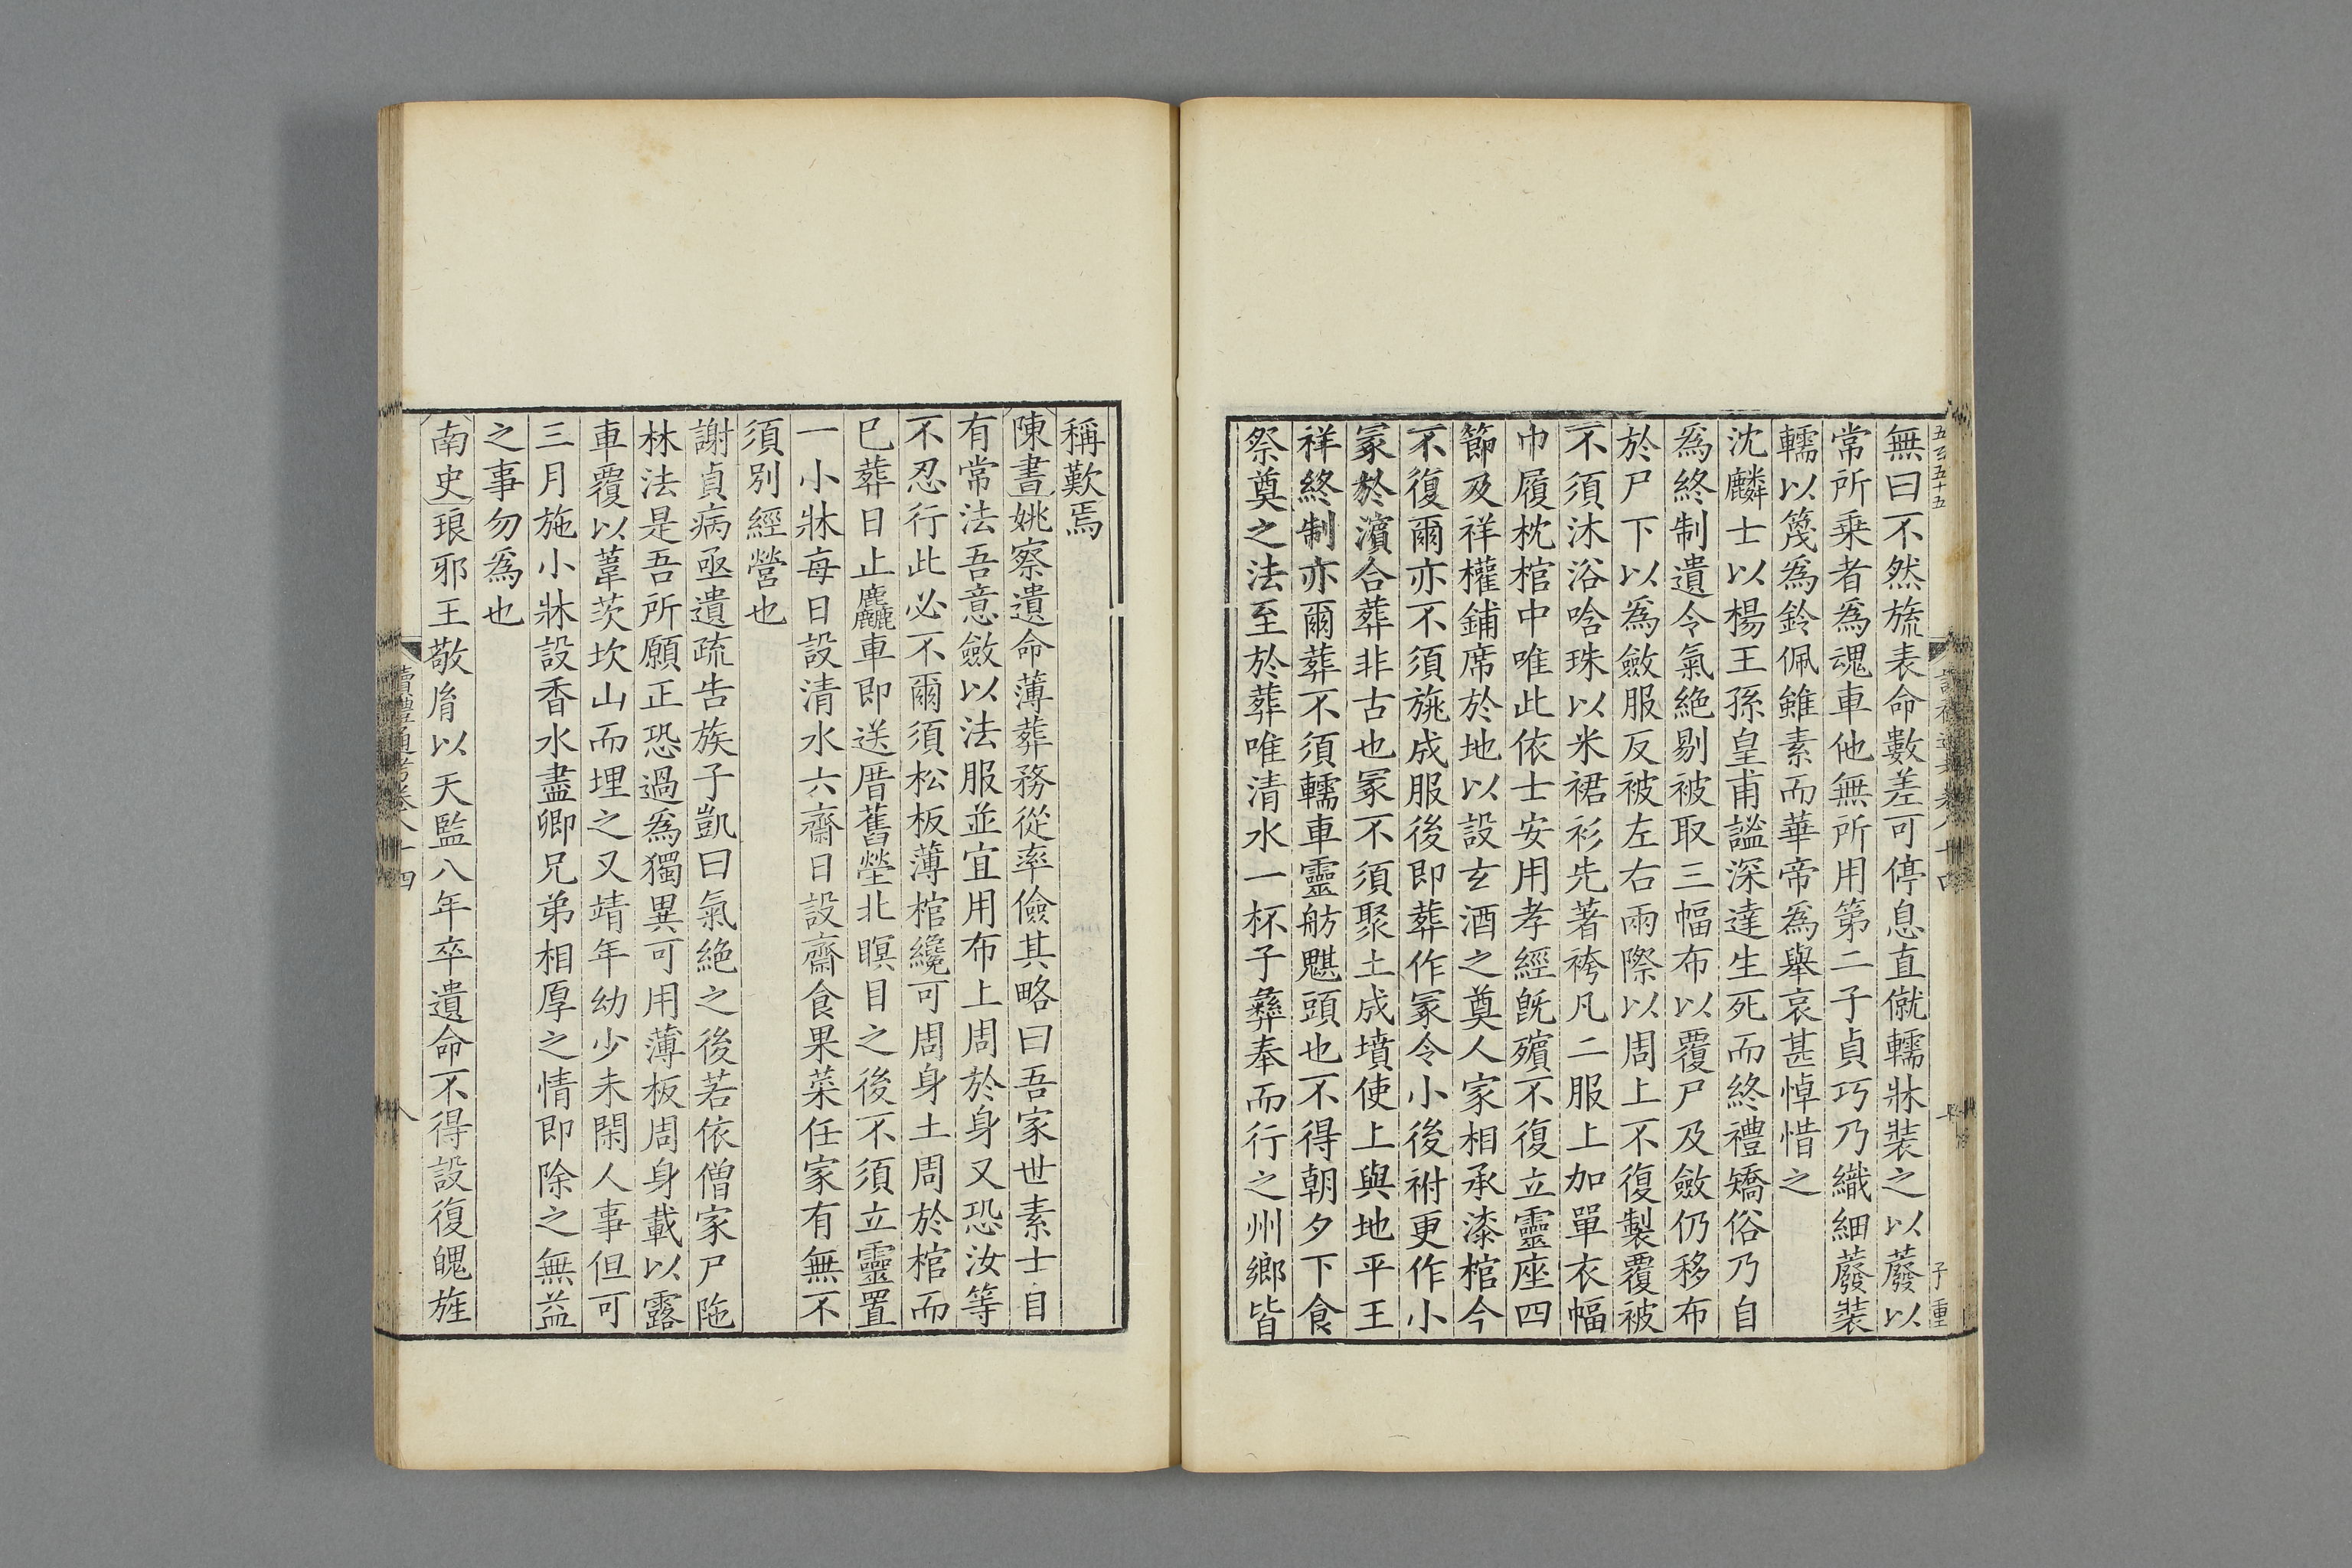 五百五十五
子重
無曰不然旒表命數差可停息直僦轜牀裝之以蘧以
常所乗者爲魂車他無所用第二子貞巧乃織細蘧裝
轜以篾爲鈴佩雖素而華帝爲舉哀甚悼惜之
沈麟士以楊王孫皇甫謐深達生死而終禮矯俗乃自
爲終制遺令氣絶剔被取三幅布以覆尸及斂仍移布
於尸下以爲斂服反被左右兩際以周上不復製覆被
不須沐浴唅珠以米裙衫先著袴凡二服上加單衣幅
巾履枕棺中唯此依士安用孝經旣殯不復立靈座四
節及祥權鋪席於地以設玄酒之奠人家相承漆棺今
不復爾亦不須旐成服後即葬作冢令小後祔更作小
冢於濵合葬非古也冢不須聚土成墳使上與地平王
祥終制亦爾葬不須轜車靈舫魌頭也不得朝夕下食
祭奠之法至於葬唯清水一杯子彝奉而行之州鄉皆
稱歎焉
陳書姚察遺命薄葬務從率儉其略曰吾家世素士自
有常法吾意斂以法服並宜用布上周於身又恐汝等
不忍行此必不爾須松板薄棺纔可周身土周於棺而
已葬日止麤車即送厝舊塋北瞑目之後不須立靈置
一小牀每日設清水六齋日設齋食果菜任家有無不
須別經營也
謝貞病亟遺疏告族子凱曰氣絶之後若依僧家尸陁
林法是吾所願正恐過爲獨異可用薄板周身載以露
車覆以葦茨坎山而埋之又靖年幼少未閑人事但可
三月施小牀設香水盡卿兄弟相厚之情即除之無益
之事勿爲也
南史琅邪王敬胤以天監八年卒遺命不得設復魄旌
讀禮通考卷八十四
八